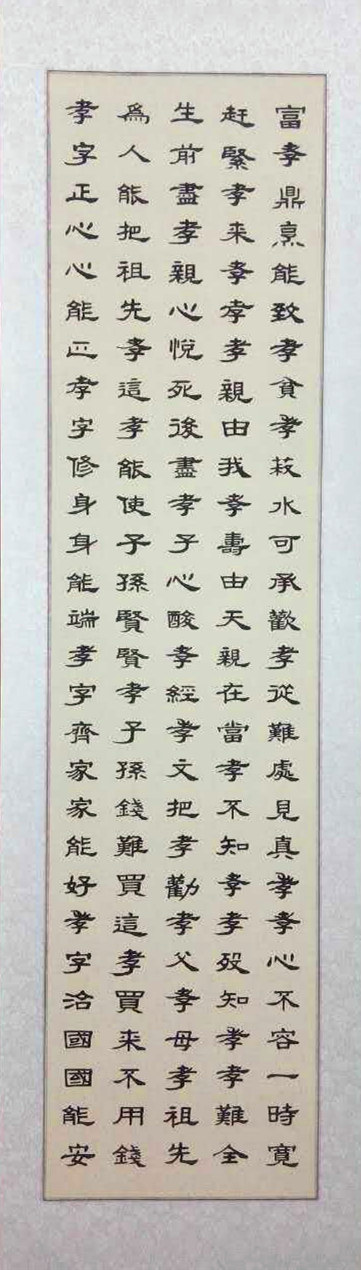 富孝鼎烹能致孝貧孝菽水可承歡孝從難處見真孝孝心不容一時寬
赶緊孝來孝孝孝親由我孝壽由天親在當孝不知孝孝歿知孝孝難全
生前盡孝親心悅死後盡孝子心酸孝經孝文把孝勸孝父孝母孝祖先
為人能把祖先孝這孝能使子孫賢賢孝子孫錢難買這孝買來不用錢
孝字正心心能正孝字修身身能端孝字齊家家能好孝字治國國能安